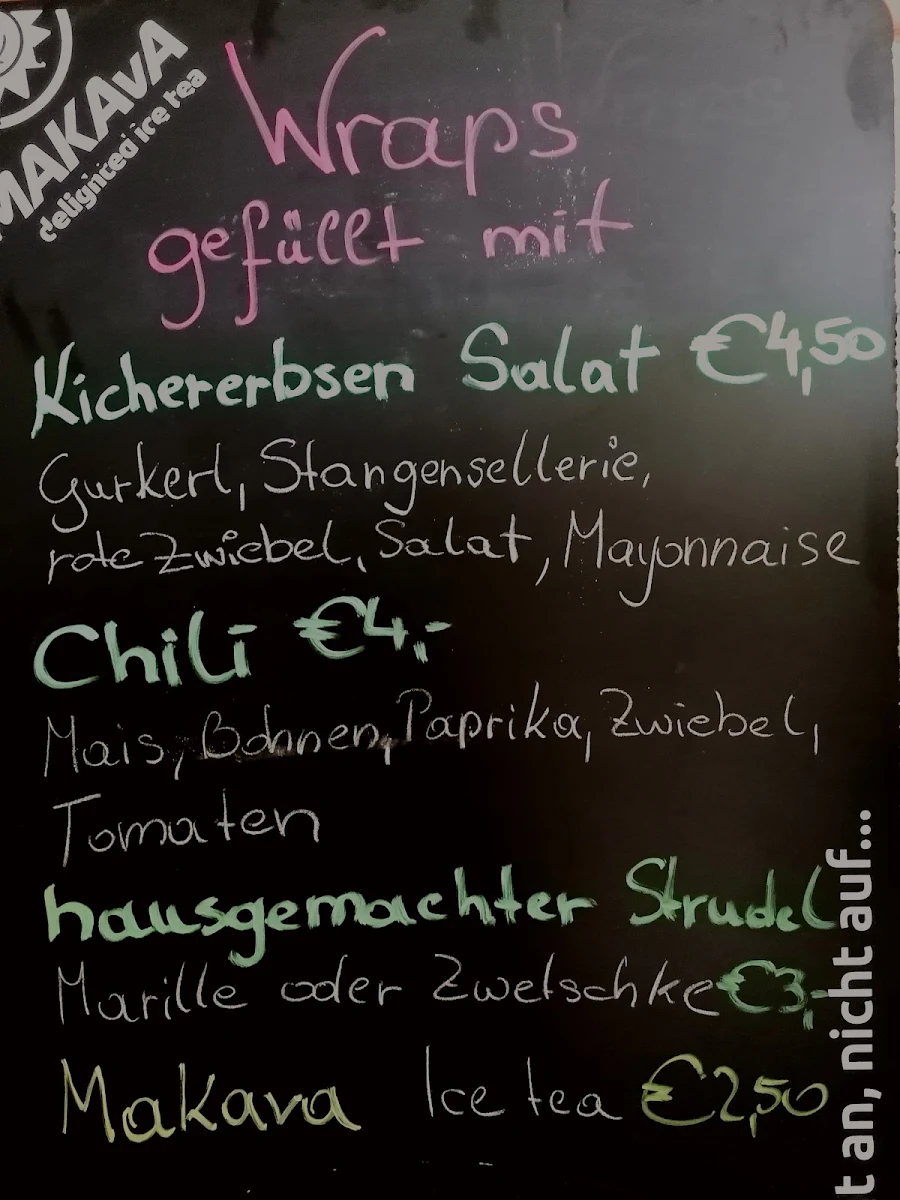 MAKAvA
delighted ice tea
Wraps
gefüllt mit
Kichererbsen Salat €4,50
Gurkerl, Stangensellerie,
rote Zwiebel, Salat, Mayonnaise
Chili €4,-
Mais, Bohnen, Paprika, Zwiebel,
Tomaten
hausgemachter Strudel
Marille oder Zwetschke €3,-
Makava Ice tea €2,50
t an, nicht auf...